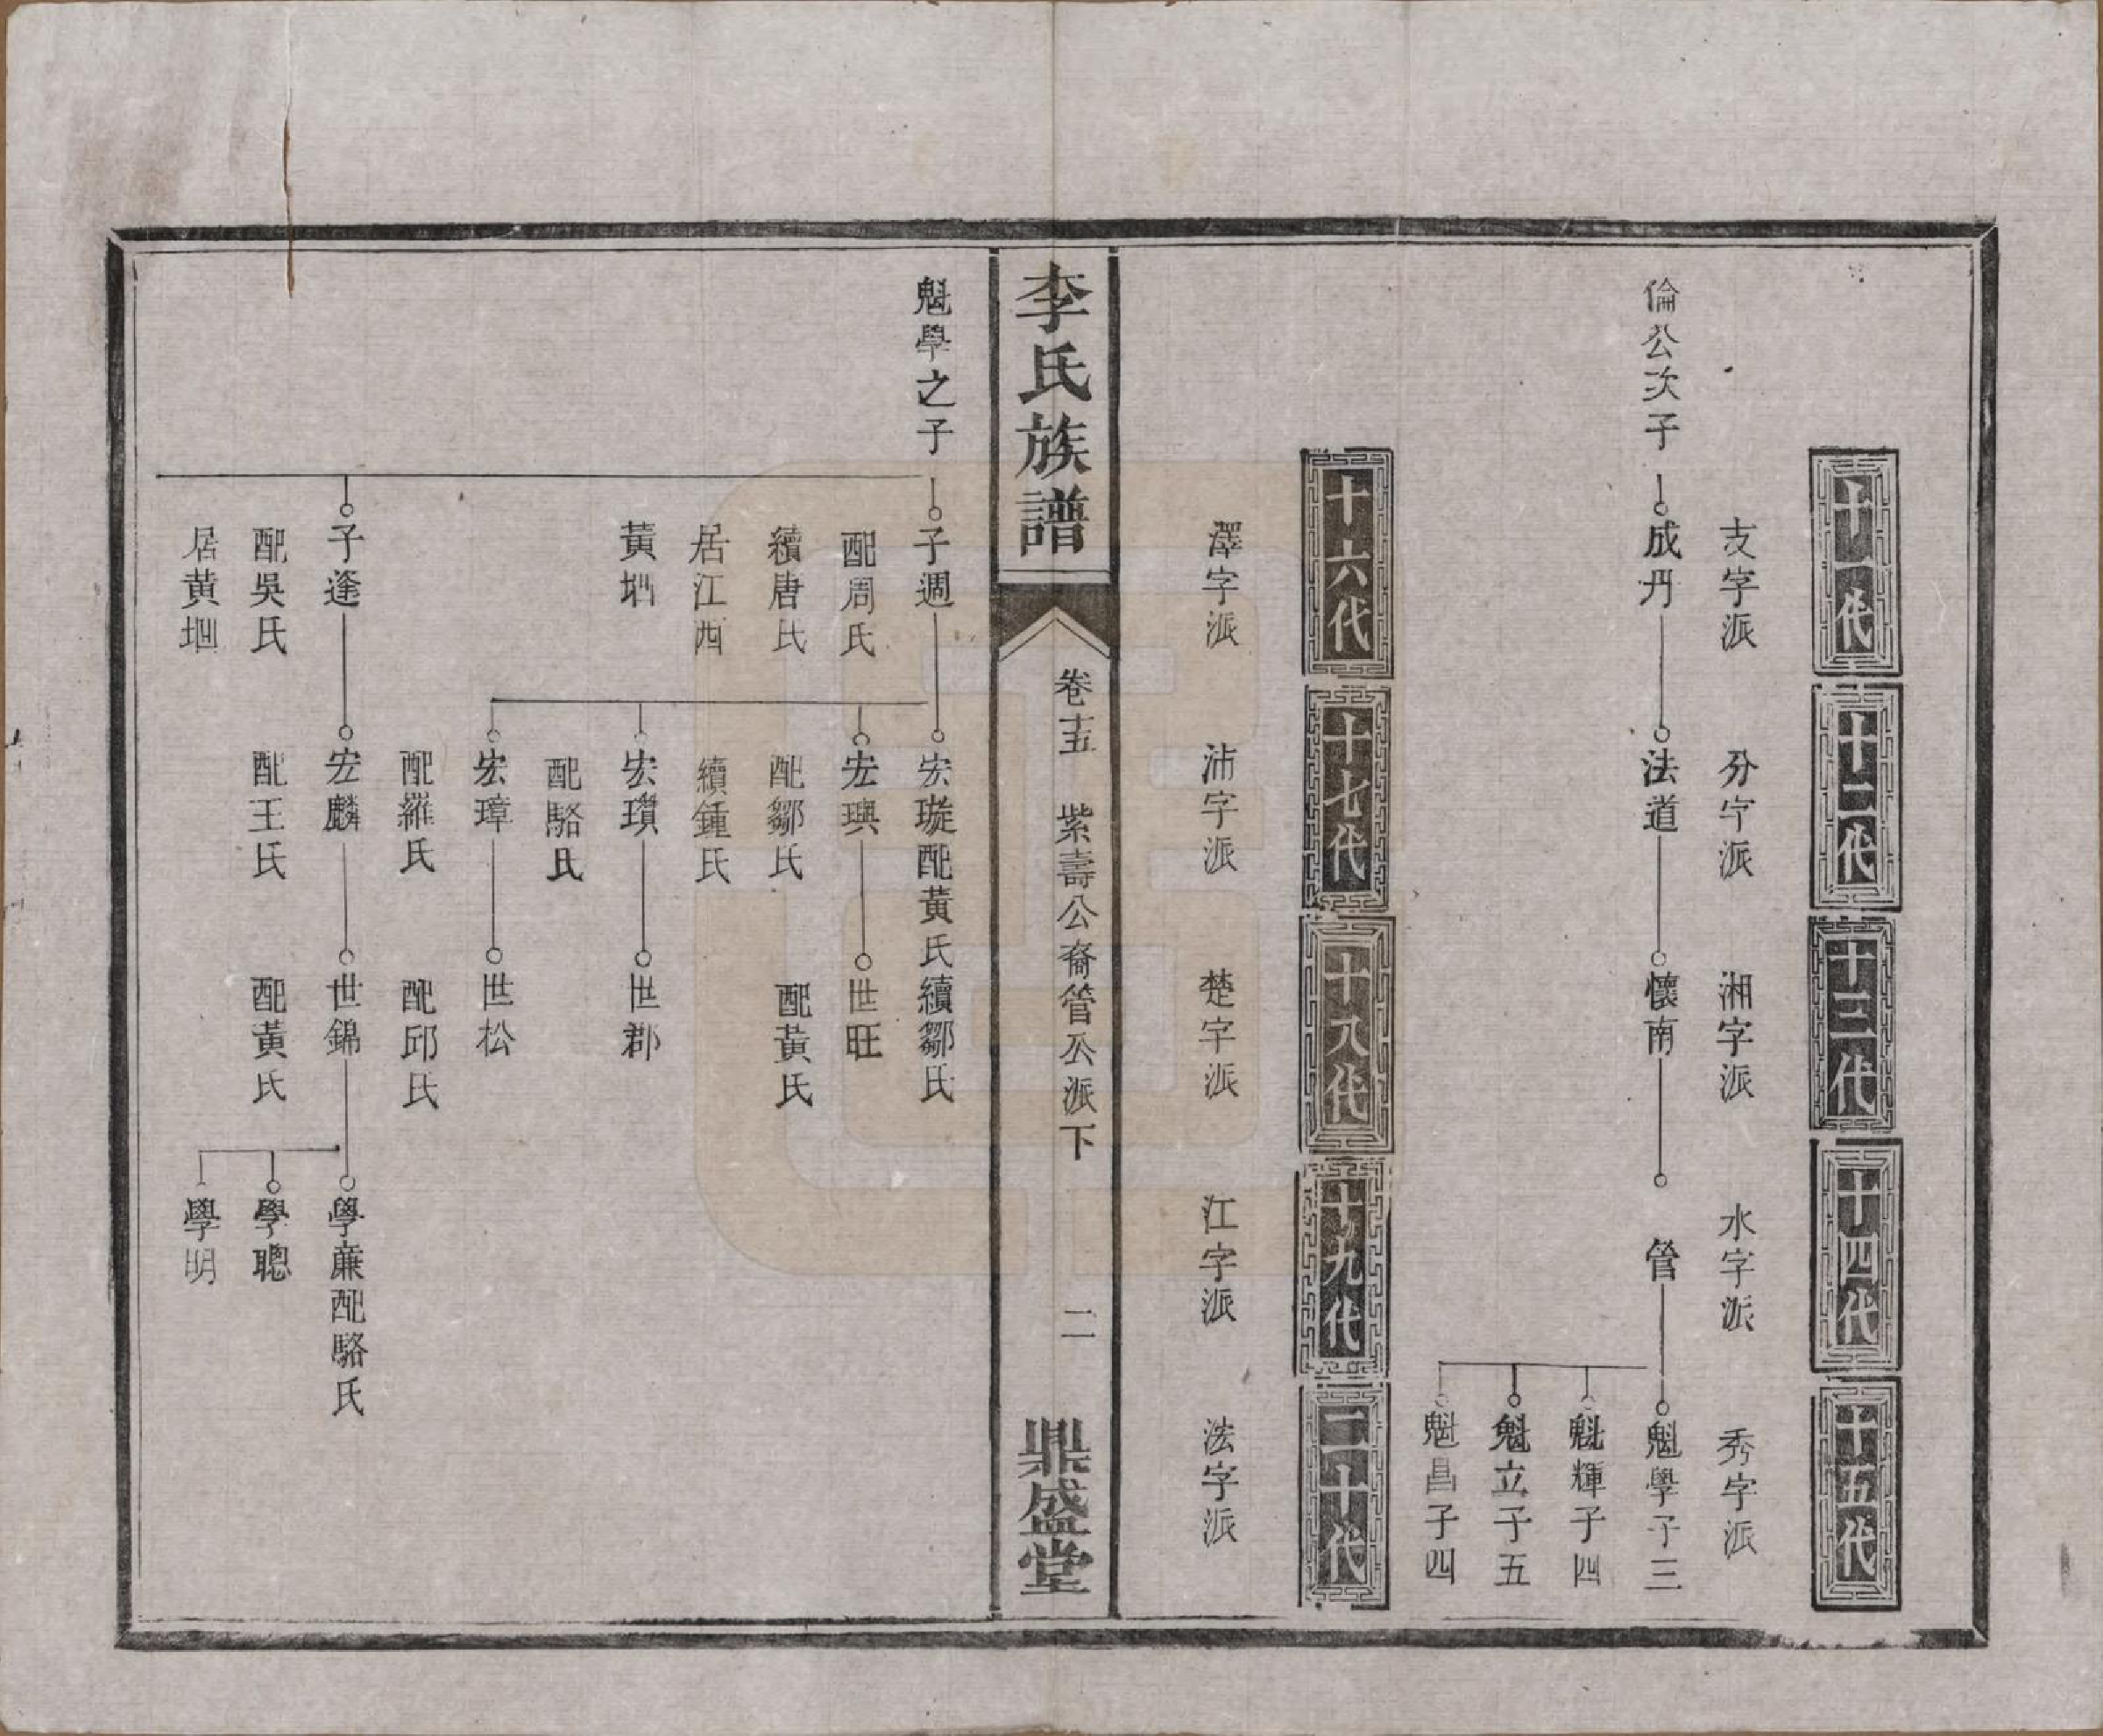 十一代
十二代
十三代
十四代
十五代
支字派
分字派
湘字派
水字派
秀字派
倫公次子
成丹
法道
懷南
管
魁學子三
魁輝子四
魁立子五
魁昌子四
十六代
十七代
十八代
十九代
二十代
澤字派
沛字派
楚字派
江字派
法字派
李氏族譜
卷十五
紫壽公裔管公派下
二
鼎盛堂
魁學之子
子週
宏璇配黃氏續鄒氏
配周氏
宏璵
世旺
續唐氏
配鄒氏
配黃氏
居江西
續鍾氏
黃垇
宏瓚
世郡
配駱氏
宏璋
世松
配羅氏
配邱氏
子逢
宏麟
世錦
學薕配駱氏
配吳氏
配王氏
配黃氏
學聰
居黃垇
學明